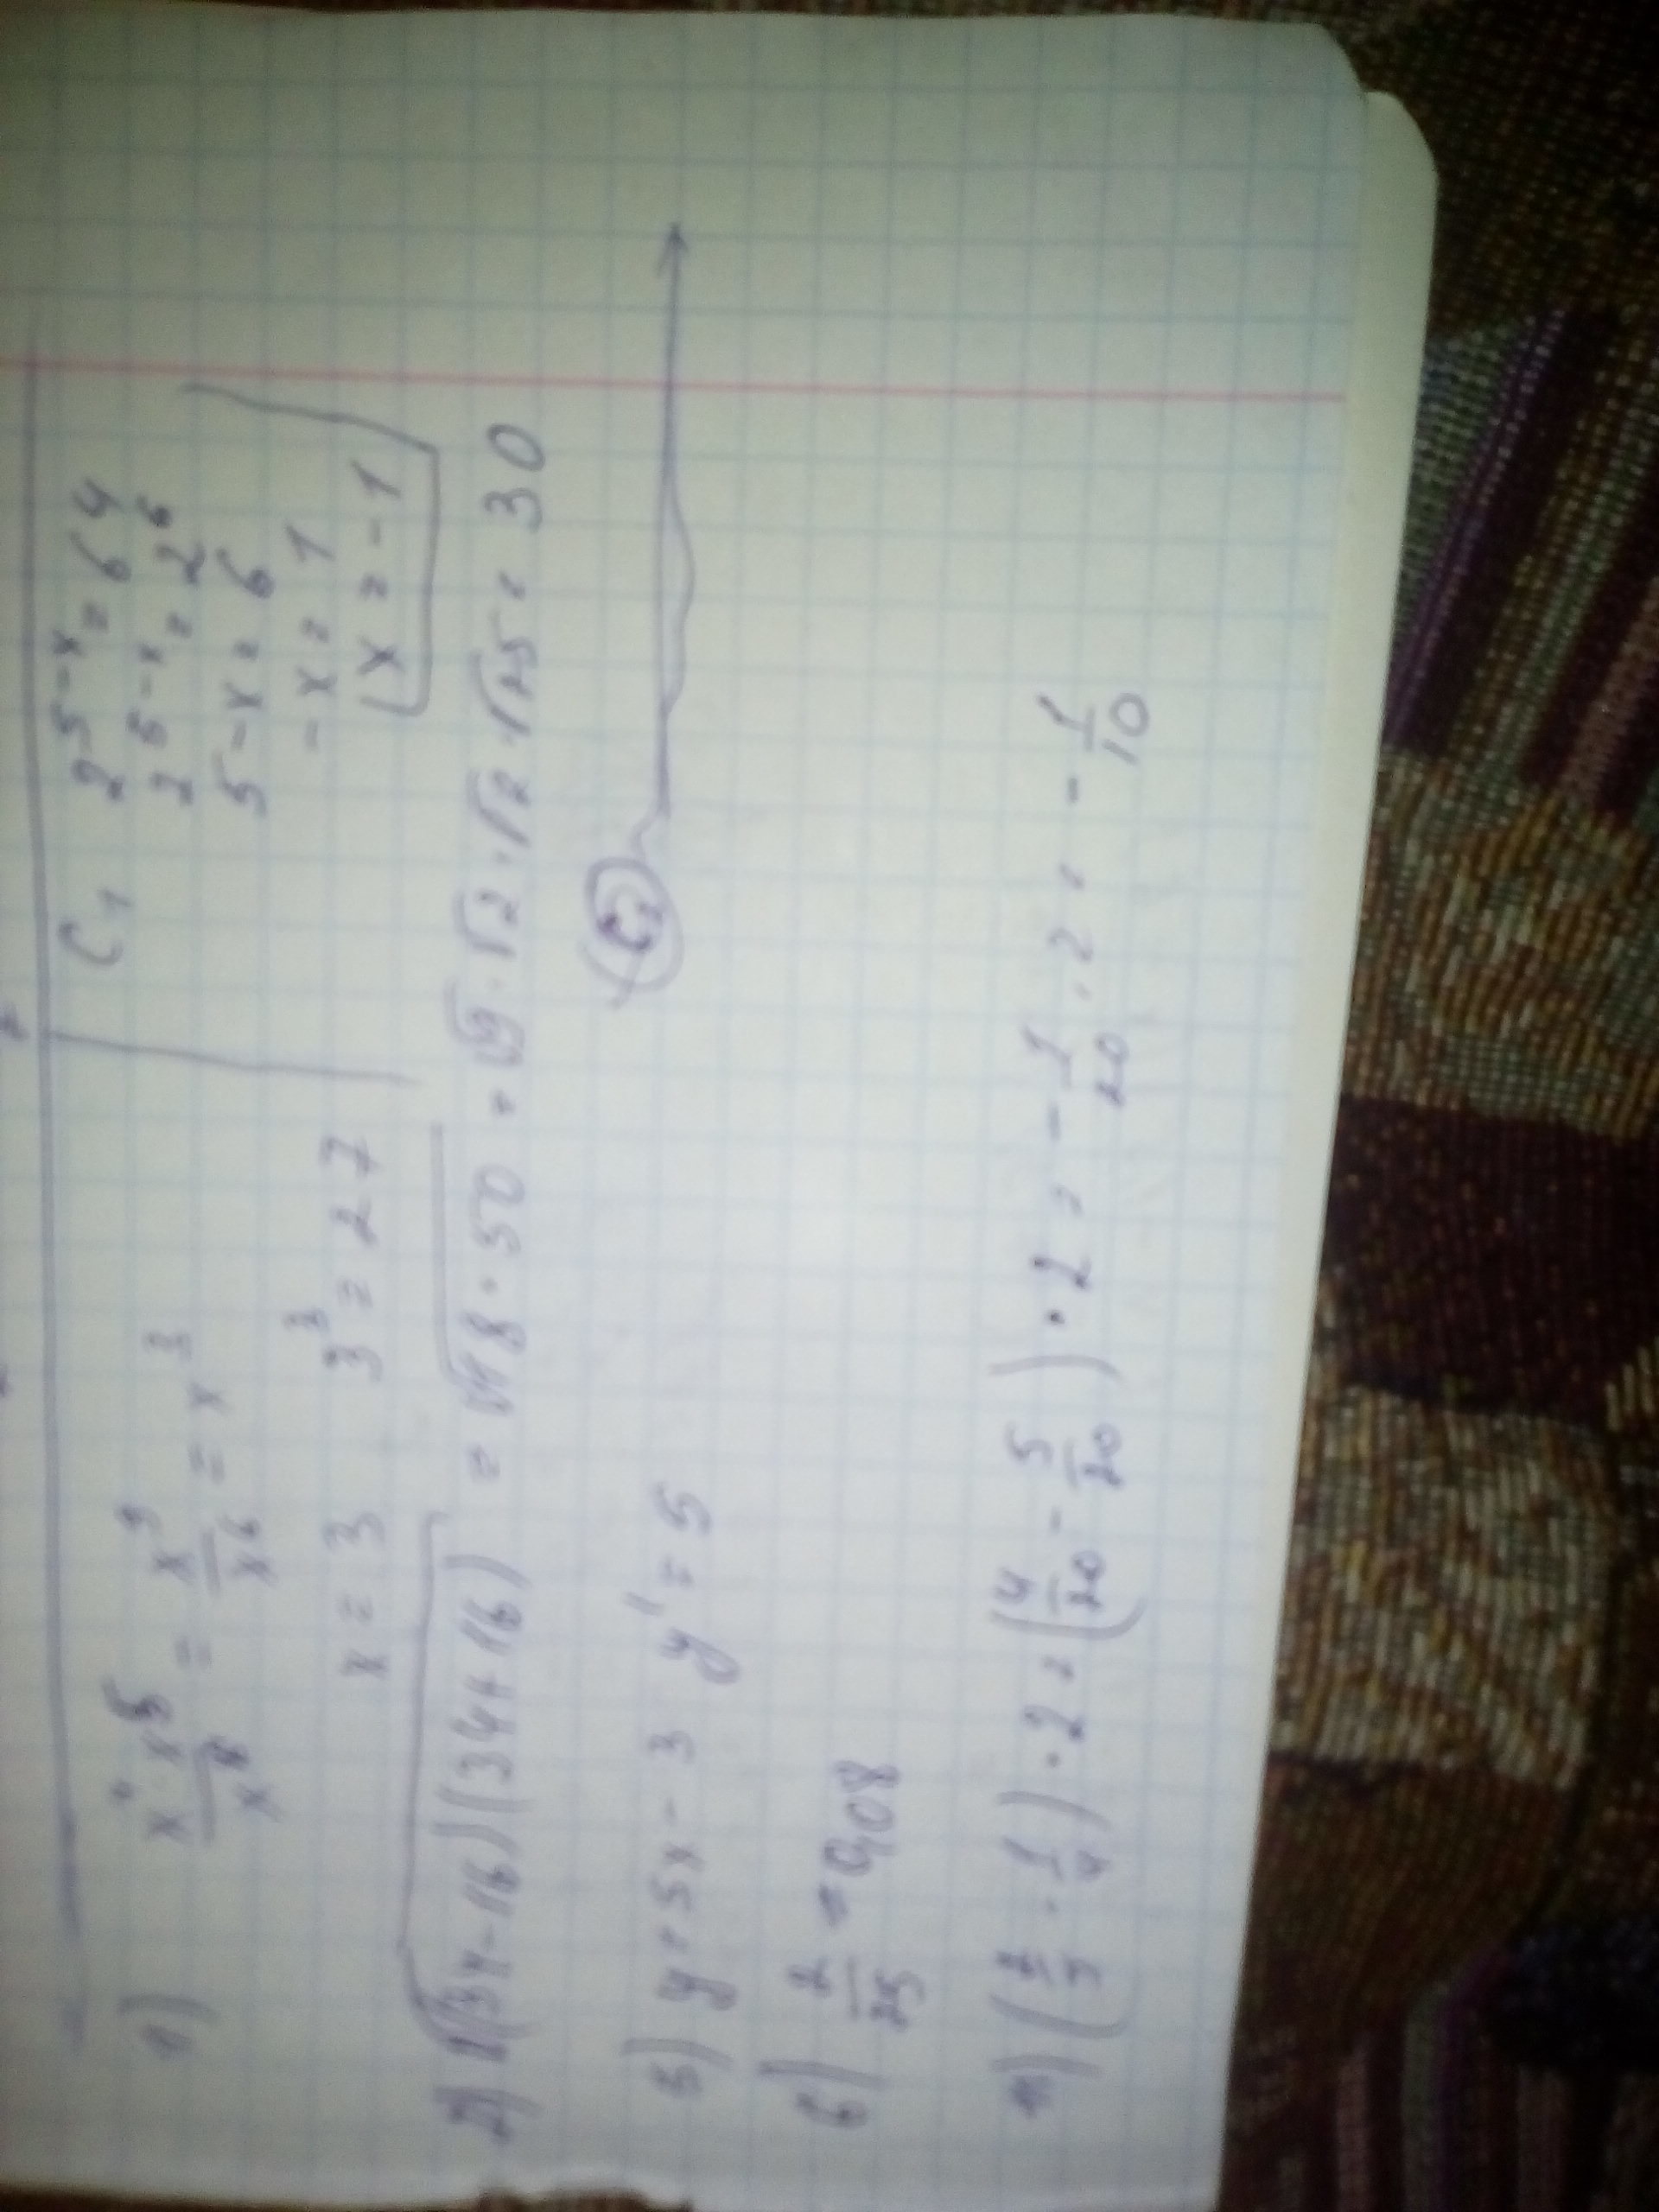 1) x⁴ x⁵ / x⁸ = x⁹ / x⁶ = x³
x = 3   3³ = 27
C1   2^(5-x) = 64
2^(5-x) = 2⁶
5-x = 6
-x = 1
x = -1
2) √((34-16)(34+16)) = √(18·50) = √9·√2·√2·√25 = 30
3) y = 5x-3   y' = 5
C2
6) 2/25 = 0,08
(1/5 - 1/4)·2 = (4/20 - 5/20)·2 = -1/20·2 = -1/10